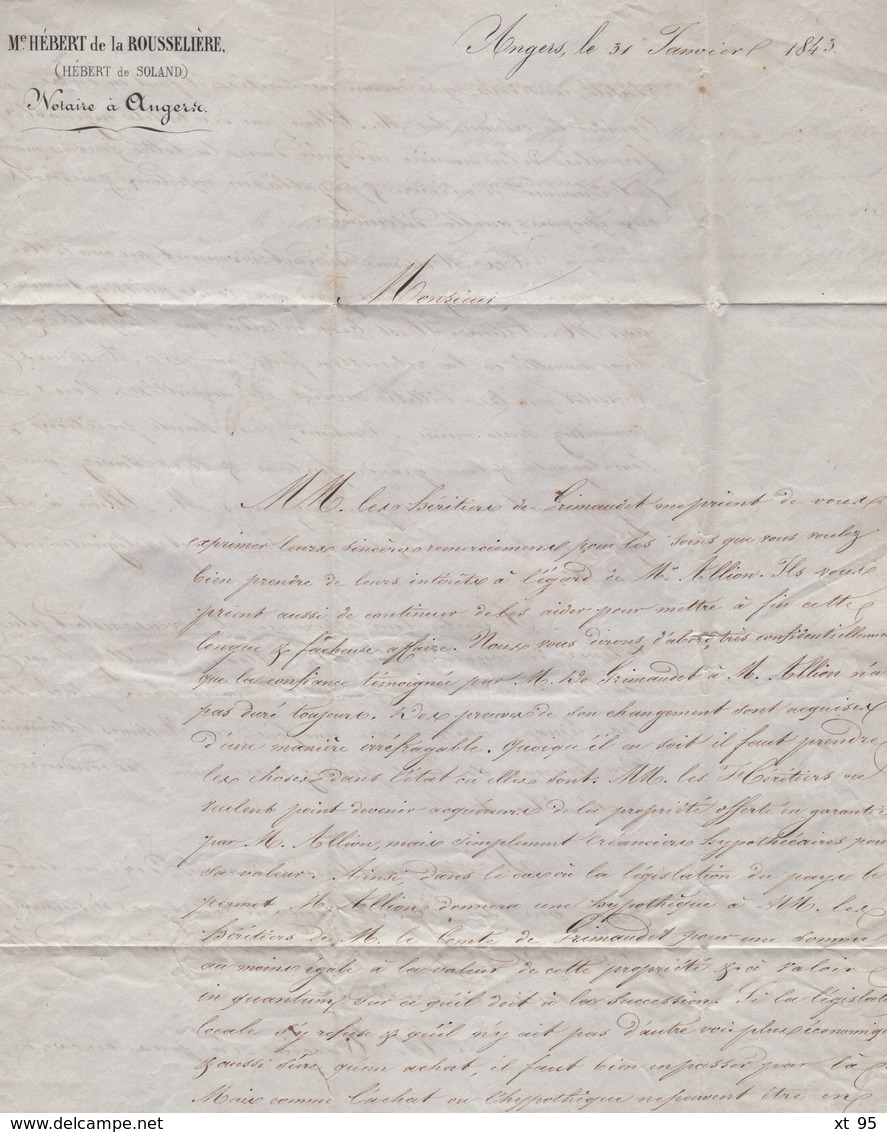 Me HÉBERT de la ROUSSELIÈRE,
(HÉBERT de SOLAND)
Notaire à Angers.
Angers, le 31 Janvier 1843.
Monsieur,
MM. les héritiers de Grimaudet me prient de vous
exprimer leurs sincères remerciemens pour les soins que vous voulez
bien prendre de leurs intérêts à l'égard de Mr Allion. Ils vous
prient aussi de continuer de les aider pour mettre à fin cette
longue & fâcheuse affaire. Nous vous dirons, d'abord, très confidentiellement
que la confiance témoignée par M. De Grimaudet à M. Allion n'a
pas duré toujours. Des preuves de son changement sont acquises
d'une manière irréfragable. Quoiqu'il en soit il faut prendre
les choses dans l'état où elles sont. MM. les Héritiers ne
veulent point devenir acquéreurs de la propriété offerte en garantie
par M. Allion, mais simplement créanciers hypothécaires pour
sa valeur. Ainsi, dans le cas où la législation du pays le
permet, M. Allion donnera une hypothèque à MM. les
héritiers de M. le Comte de Grimaudet pour une somme
au moins égale à la valeur de cette propriété & à valoir
in quantum sur ce qu'il doit à la succession. Si la législat
locale s'y refuse & qu'il n'y ait pas d'autre voie plus économiq
& aussi sûre qu'un achat, il faut bien en passer par là
Mais comme l'achat ou l'hypothèque ne peuvent être en
xt 95